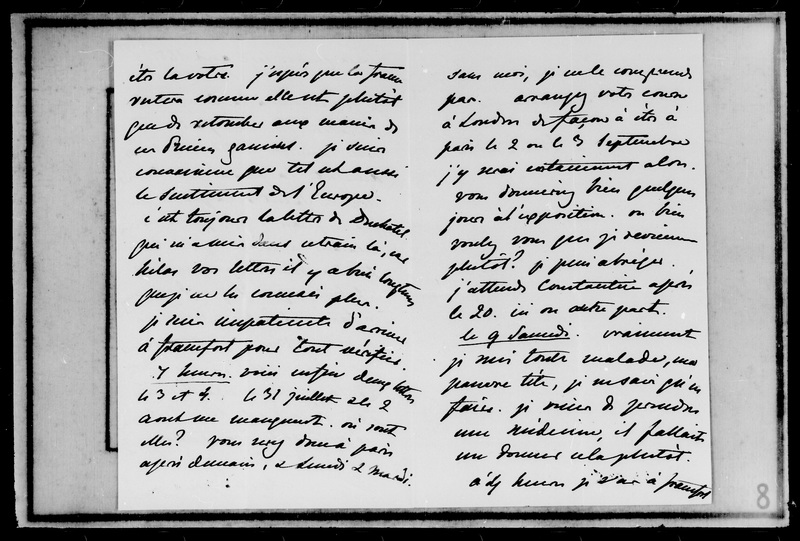 êtes la votre. j'espère que la france
restera comme elle est plutôt
que de retomber aux mains de
ces Princes gamins. je suis
convaincue que tel est aussi
le sentiment de l'Europe.
c'est toujours la lettre de Duchatel
qui m'a mise dans ce train là, car
hélas vos lettres il y a bien longtems
que je ne les connais plus.
je suis impatiente d'arriver
à francfort pour tout vérifier.
7 heures. voici enfin deux lettres
le 3 et 4. le 31 juillet & le 2
aout me manquent. où sont
elles? vous serez donc à paris
après demain, & Lundi & mardi
sans moi, je ne le comprends
pas. arrangez votre course
à Londres de façon à être à
paris le 2 ou le 3 Septembre
j'y serai certainement alors.
vous donnerez bien quelques
jours à l'exposition. ou bien
voulez vous que je revienne
plutôt? je puis abréger.
j'attends Constantin après
le 20. ici ou autre part.
le 9 Samedi. vraiment
je suis toute malade, ma
pauvre tête, je ne sais qu'en
faire. je viens de prendre
une médecine, il fallait
me donner cela plutôt.
à dix heures je vais à francfort
8